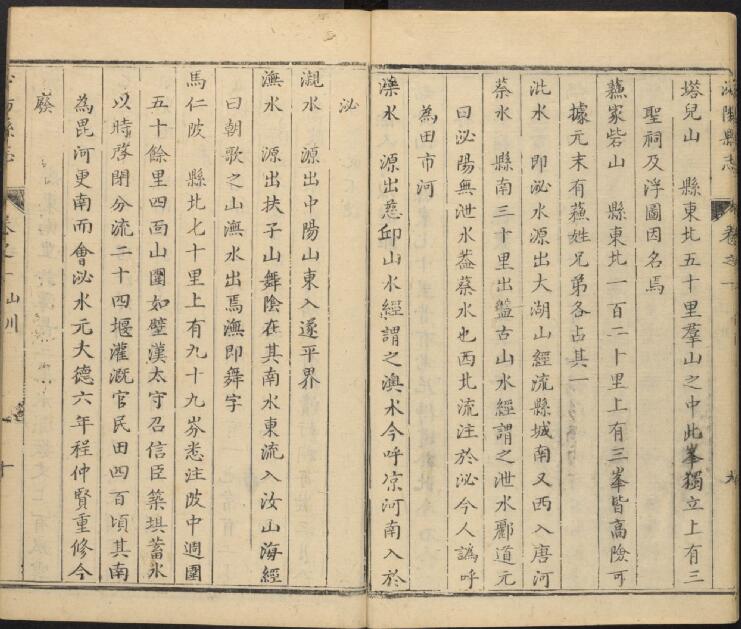 泌陽縣志 卷之一 九
塔兒山 縣東北五十里羣山之中此峯獨立上有三
聖祠及浮圖因名焉
蘓家砦山 縣東北一百二十里上有三峯皆高險可
據元末有蘓姓兄弟各占其一
泚水 即泌水源出大湖山經流縣城南又西入唐河
蔡水 縣南三十里出盤古山水經謂之泄水酈道元
曰泌陽無泄水葢蔡水也西北流注於泌今人譌呼
為田市河
濜水 源出慈邱山水經謂之澳水今呼凉河南入於
泌
瀙水 源出中陽山東入遂平界
潕水 源出扶子山舞陰在其南水東流入汝山海經
曰朝歌之山潕水出焉潕即舞字
馬仁陂 縣北七十里上有九十九岔悉注陂中週圍
五十餘里四面山圍如壁漢太守召信臣築垻蓄水
以時啓閉分流二十四堰灌溉官民田四百頃其南
為毘河更南而會泌水元大德六年程仲賢重修今
廢
泌陽縣志 卷之一 山川 十